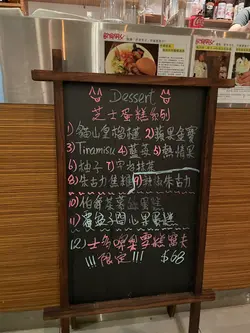 Dessert
芝士蛋糕系列
1) 貓山皇榴槤 2) 蘋果金寶
3) Tiramisu 4) 藍莓 5) 熱情果
6) 柚子 7) 宇治抹茶
8) 朱古力焦糖 9) 朱古力
10) 伯爵茶 蛋糕
11) 覆盆子開心果蛋糕
12.) 士多啤梨雪糕窩夫
!!! 限定 !!! $68